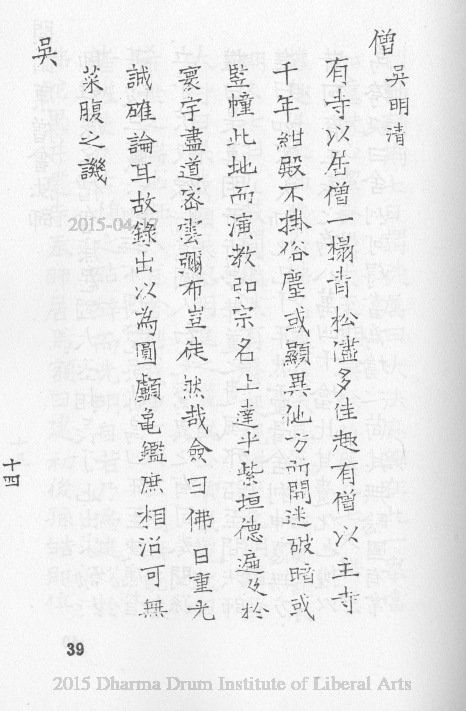 僧 吳明清
有寺以居僧一榻青松濫多佳趣有僧以主寺
千年紺殿不掛俗塵或顯異他方所開迷破暗或
豎幢此地而演教加宗名上達乎紫垣德遍及於
寰宇盡道密雲彌布豈徒然哉僉曰佛日重光
誠確論耳故錄出以為圓顱龜鑑庶相沿可無
菜腹之譏
吳
十四
39
2015-04-17
2015 Dharma Drum Institute of Liberal Arts